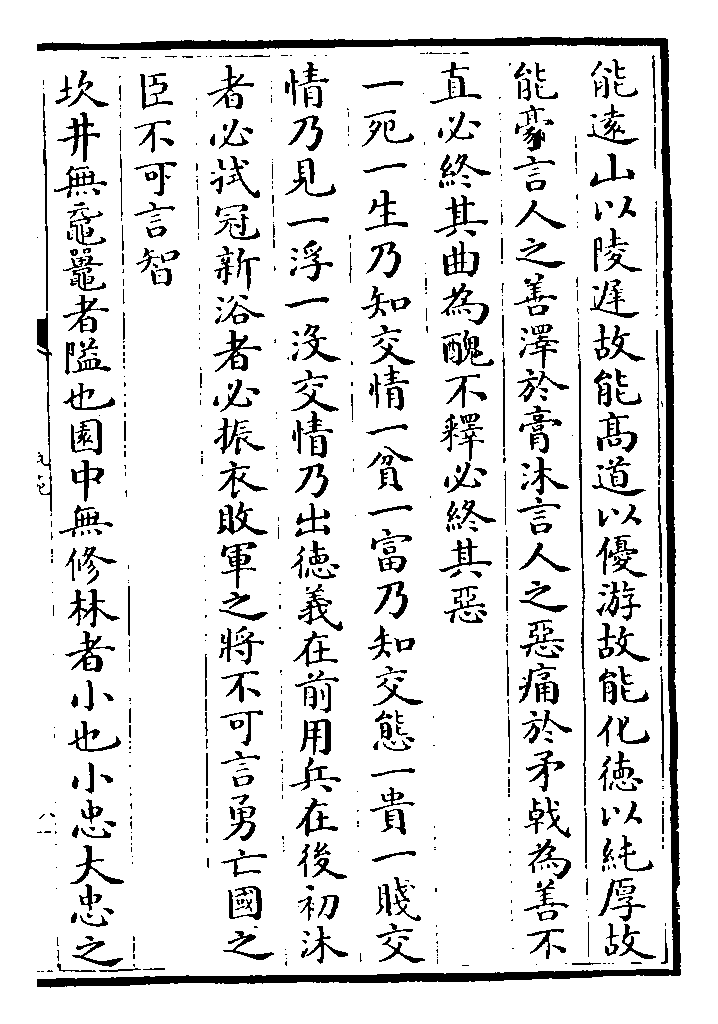 能遠山以陵遟故能髙道以優游故能化徳以純厚故
能豪言人之善澤於膏沐言人之惡痛於矛戟為善不
直必終其曲為醜不釋必終其惡
一死一生乃知交情一貧一富乃知交態一貴一賤交
情乃見一浮一没交情乃出徳義在前用兵在後初沐
者必拭冠新浴者必振衣敗軍之將不可言勇亡國之
臣不可言智
坎井無黿鼉者隘也園中無修林者小也小忠大忠之